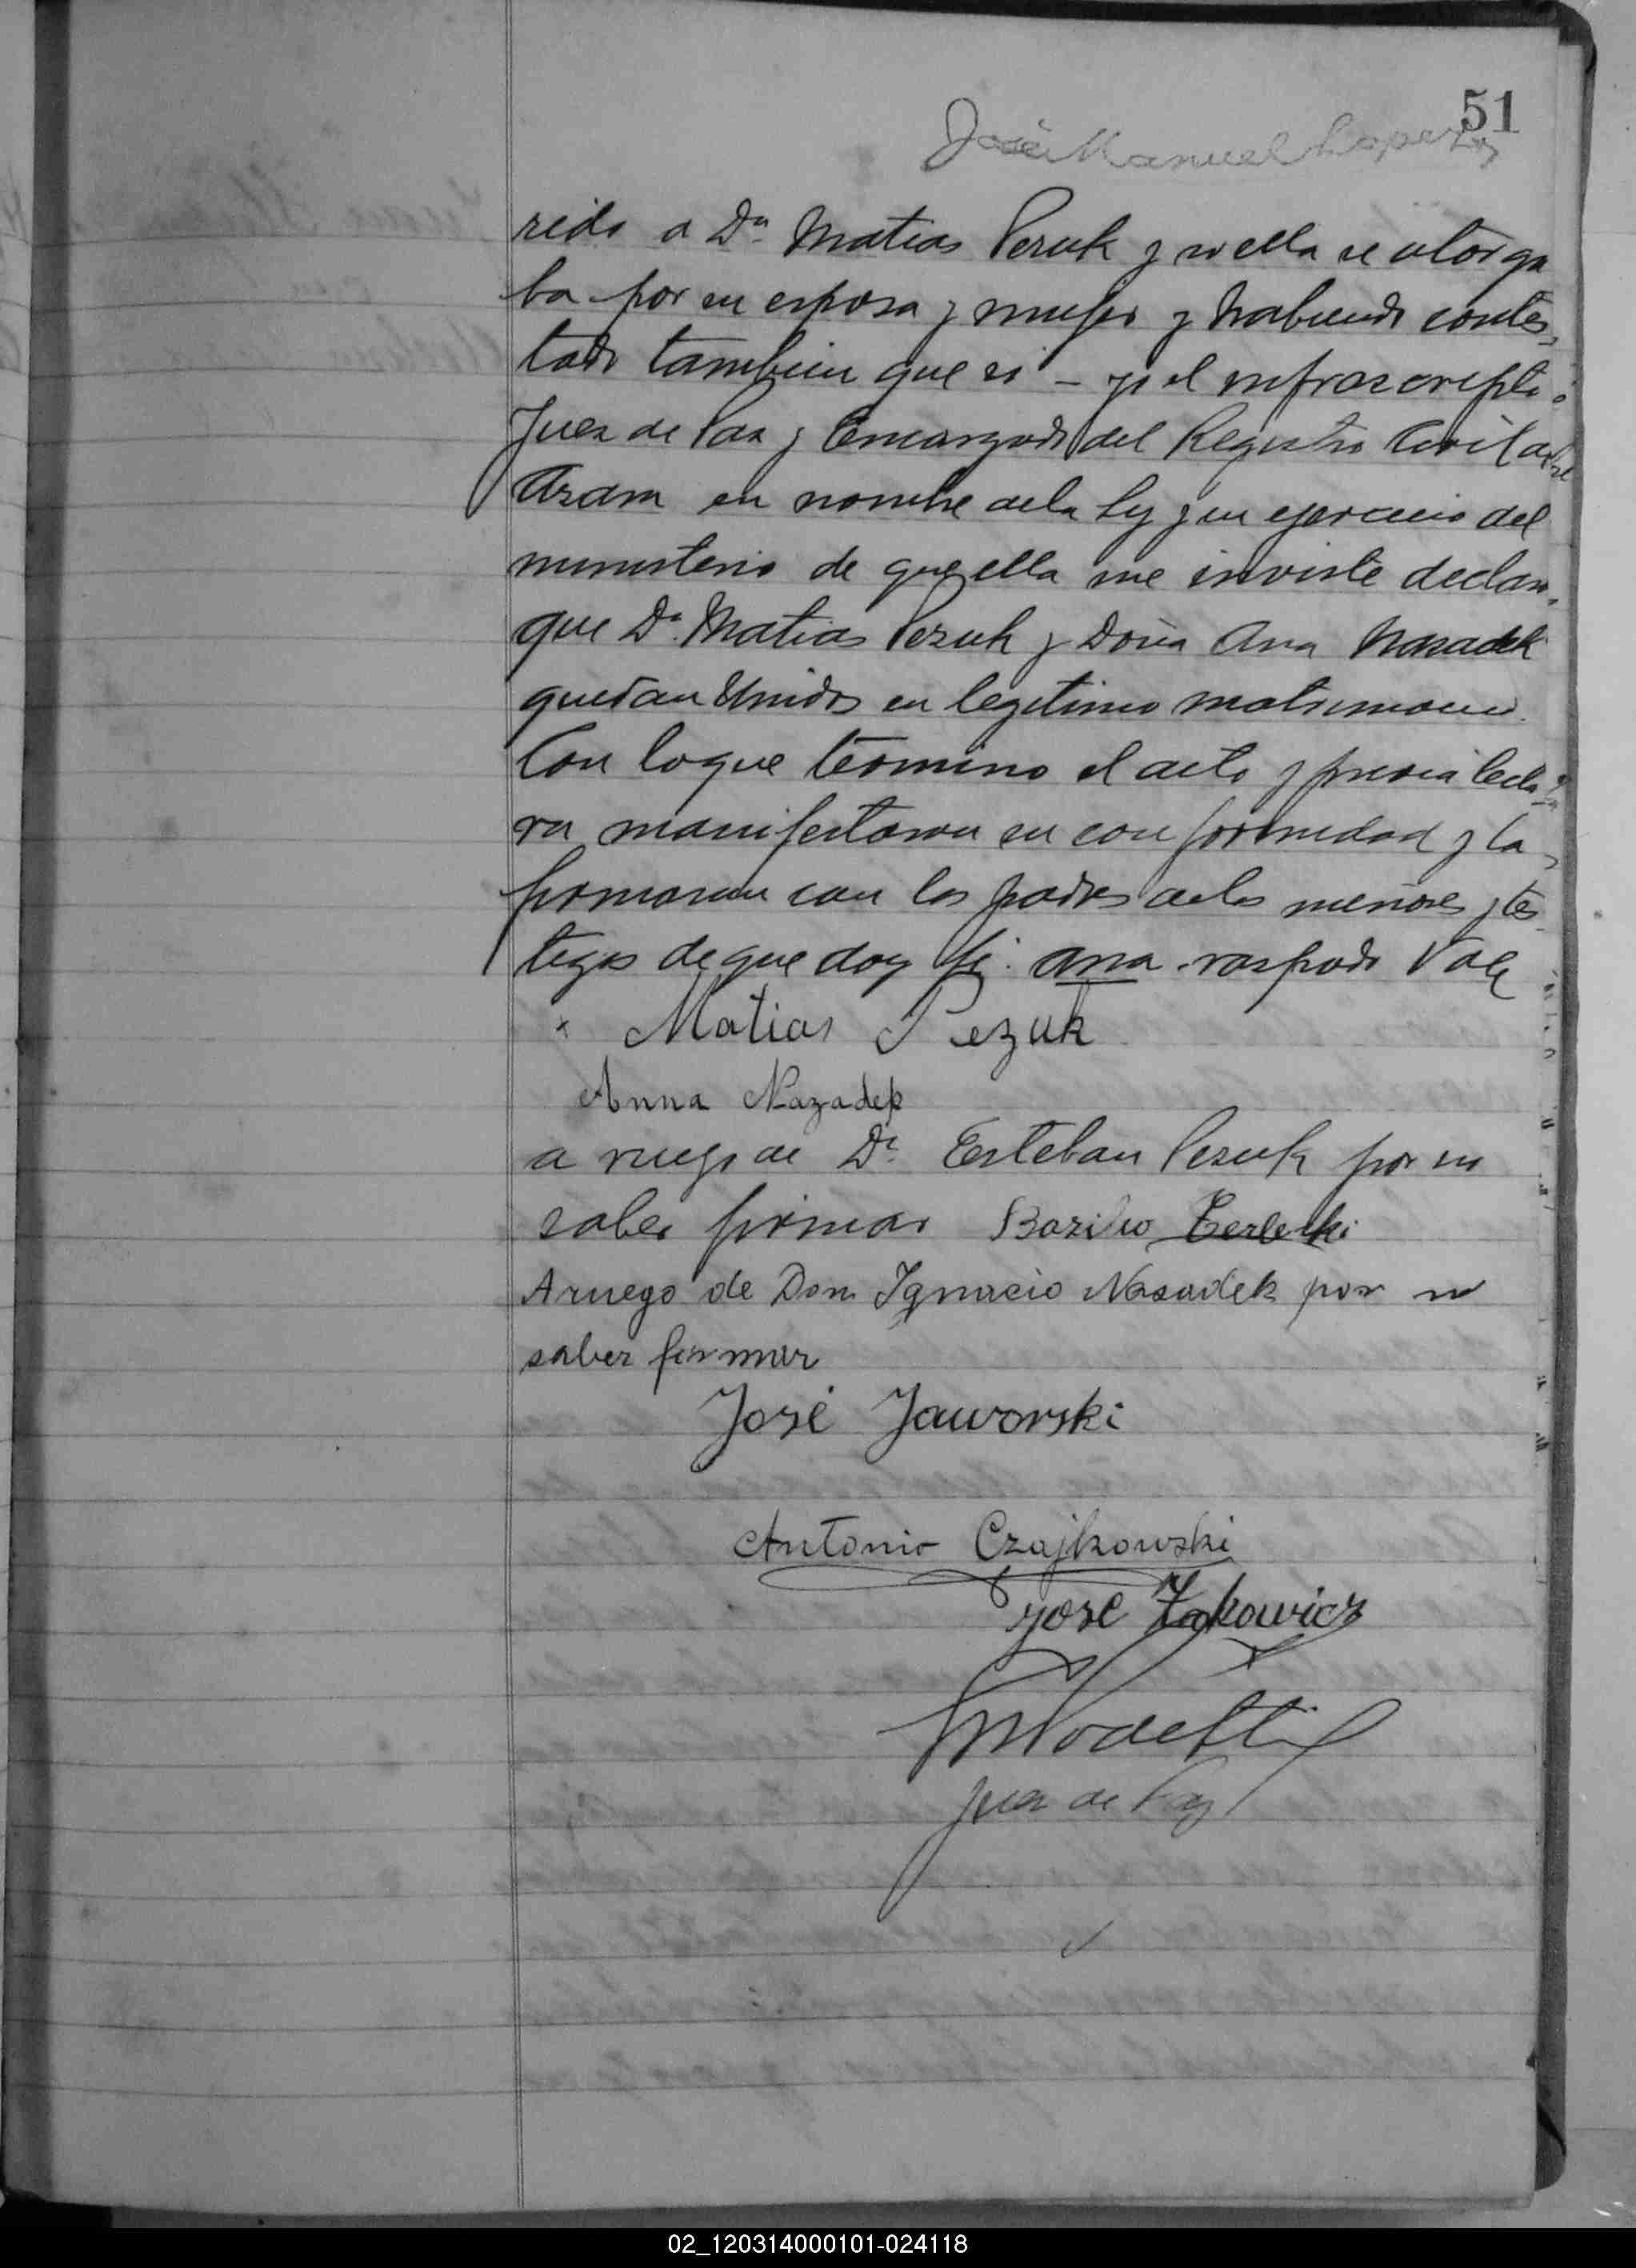 51
José Manuel Lopez
rido a Dn. Matias Pezuk y si ella se otorga
ba por su esposa y mujer y habiendo contes
tado tambien que si – yo el infrascripto
Juez de Paz y Encargado del Registro Civil de
Azara en nombre de la Ley y en ejercicio del
ministerio de que ella me inviste declaro
que Dn. Matias Pezuk y Doña Ana Nazadek
quedan Unidos en legitimo matrimonio.
Con lo que termino el acto y previa lectu
ra manifestaron su conformidad y la
firmaron con los padres de los menores y tes
tigos de que doy fé. Ana raspado Vale
x Matias Pezuk
Anna Nazadek
a ruego de Dn. Esteban Pezuk por no
saber firmar Bazilio Terlecki
Aruego de Don Ignacio Nasadek por no
saber firmar
José Jaworski
Antonio Czajkowski
José Zakowicz
Juez de Paz
02_120314000101-024118